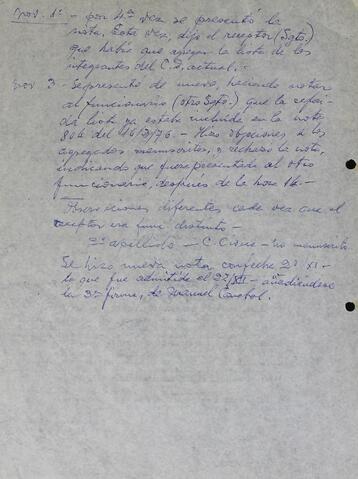 nov. 1º - por 4ª vez se presentó la
nota. Esta vez, dijo el receptor (Sgto.)
que había que agregar la lista de los
integantes del C.D. actual. -
nov 3 - Se presentó de nuevo, haciendo notar
al funcionario (otro Sgto.) que la referi-
da lista ya estaba incluida en la nota
del 16/3/76 - Hizo objeciones a los
agregados manuscritos, y rechazó la nota,
indicando que fuera presentada al otro
funcionario, después de la hora 16. -
diferentes cada vez que el
receptor era func. distinto -
2º apellido - C. Cívica - no manuscrito
Se hizo nueva nota con fecha 2º/XI -
lo que fue admitido el añadiéndose
la 3ª firma, de Manuel